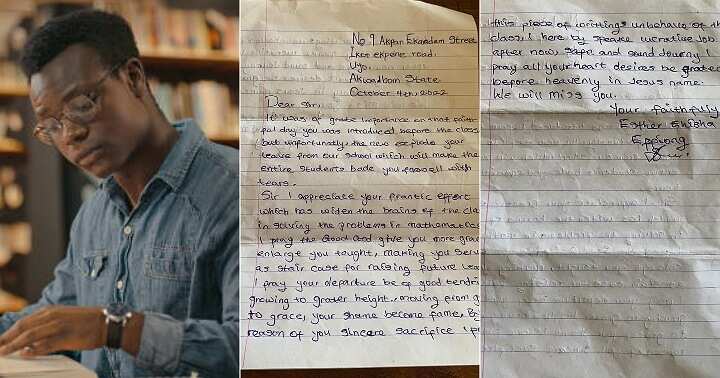 No 7 Akpan Ekaradam Street
Iket expene road.
Uyo,
Akwaibom State
October 4th, 2022
Dear Sir,
It was of grate importance on that faith
ful day you was introduced before the class
but unfortunately, the new explode your
leave from our school which will make the
entire students bade you farewell with
tears.
Sir I appreciate your frantic effort
which has widen the brains of the cla
in solving the problems in mathamatics
I pray the Good God give you more grac
enlarge you tought, making you serv
as stair case for raising future lea
I pray your departure be of good tendri
growing to grater height, moving from g
to grace, your shame become fame, B
reason of you sincere sacrifice I pr
this piece of writtings unbehave of th
class. I here by speake lucrative job
after now sapa and sand downy I
pray all your heart desires be grated
before heavenly in Jesus name.
We will miss you.
Your faithfully
Esther Ekibha
Eppiong